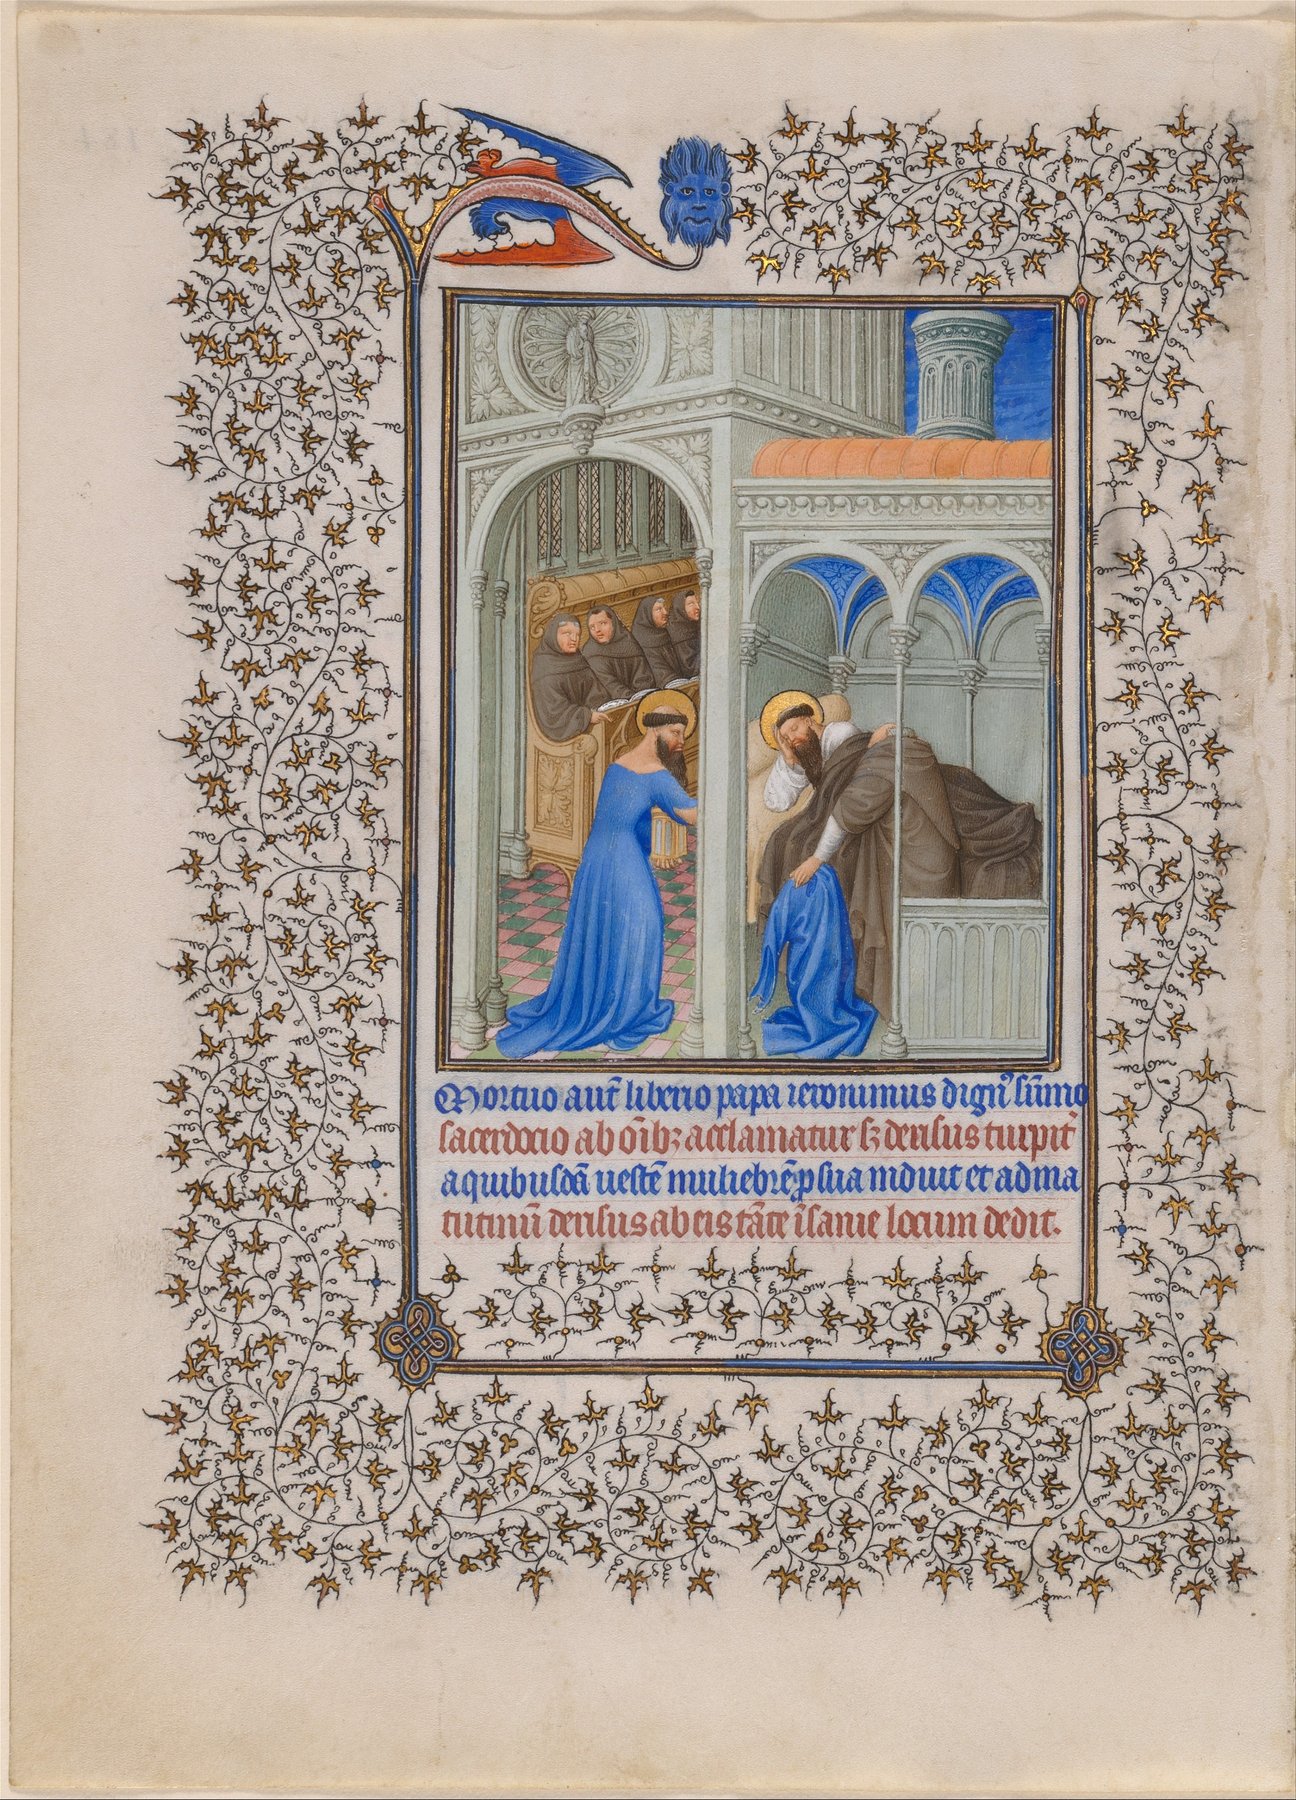 Mortuo aut̄ liberio papa ieronimus dign᷒ sūmo
sacerdocio ab oīb⁊ acclamatur s⁊ derisus turpit̄
a quibusdā uestē muliebrē p sua induit et ad ma
tutinū derisus ab eis tāte īsanie locum dedit.